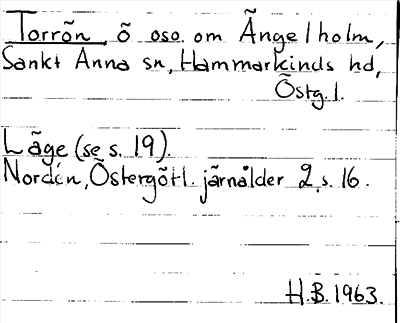 Torrõn õ oso om Ãngelholm,
Sankt Anna sn, Hammarkinds hd,
Östg. l.
Lãge (se s. 19).
Nordén, Östergötl. järnålder 2, s. 16.
H.B. 1963.